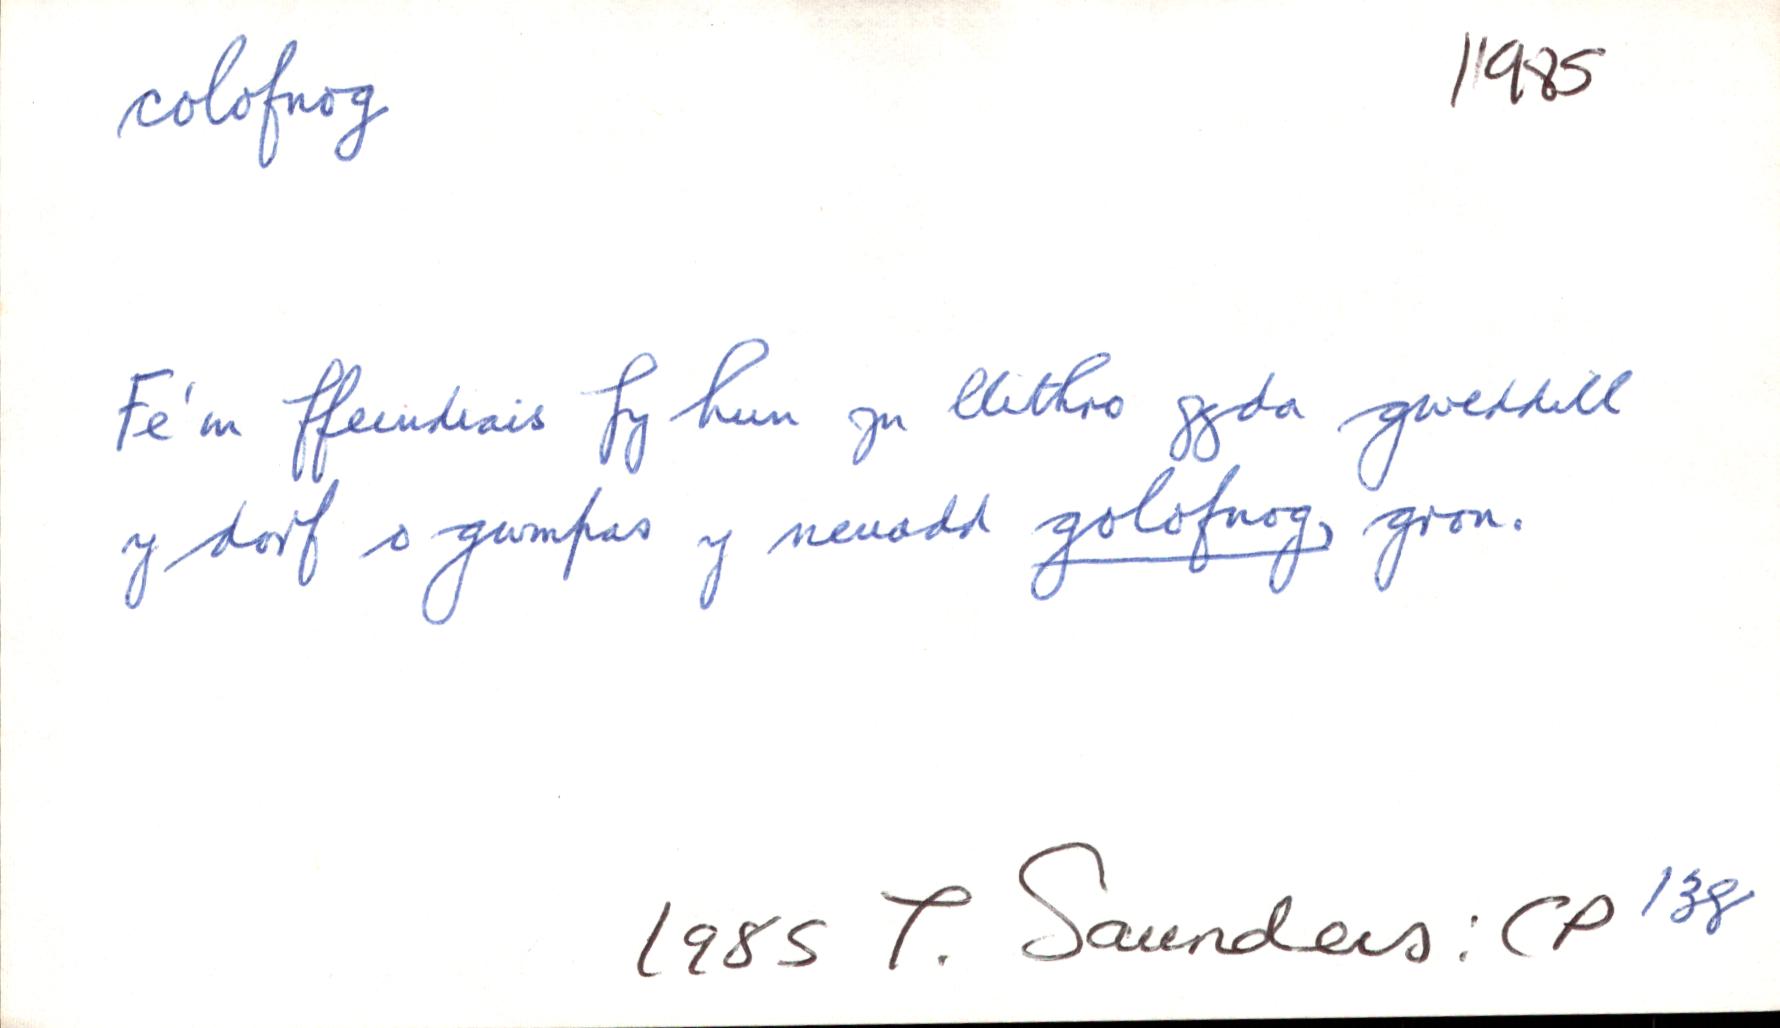 colofnog
1985
Fe'm ffeindiais fy hun yn llithro gyda gweddill
y dorf o gwmpas y neuadd golofnog, gron.
1985 T. Saunders: CP 138